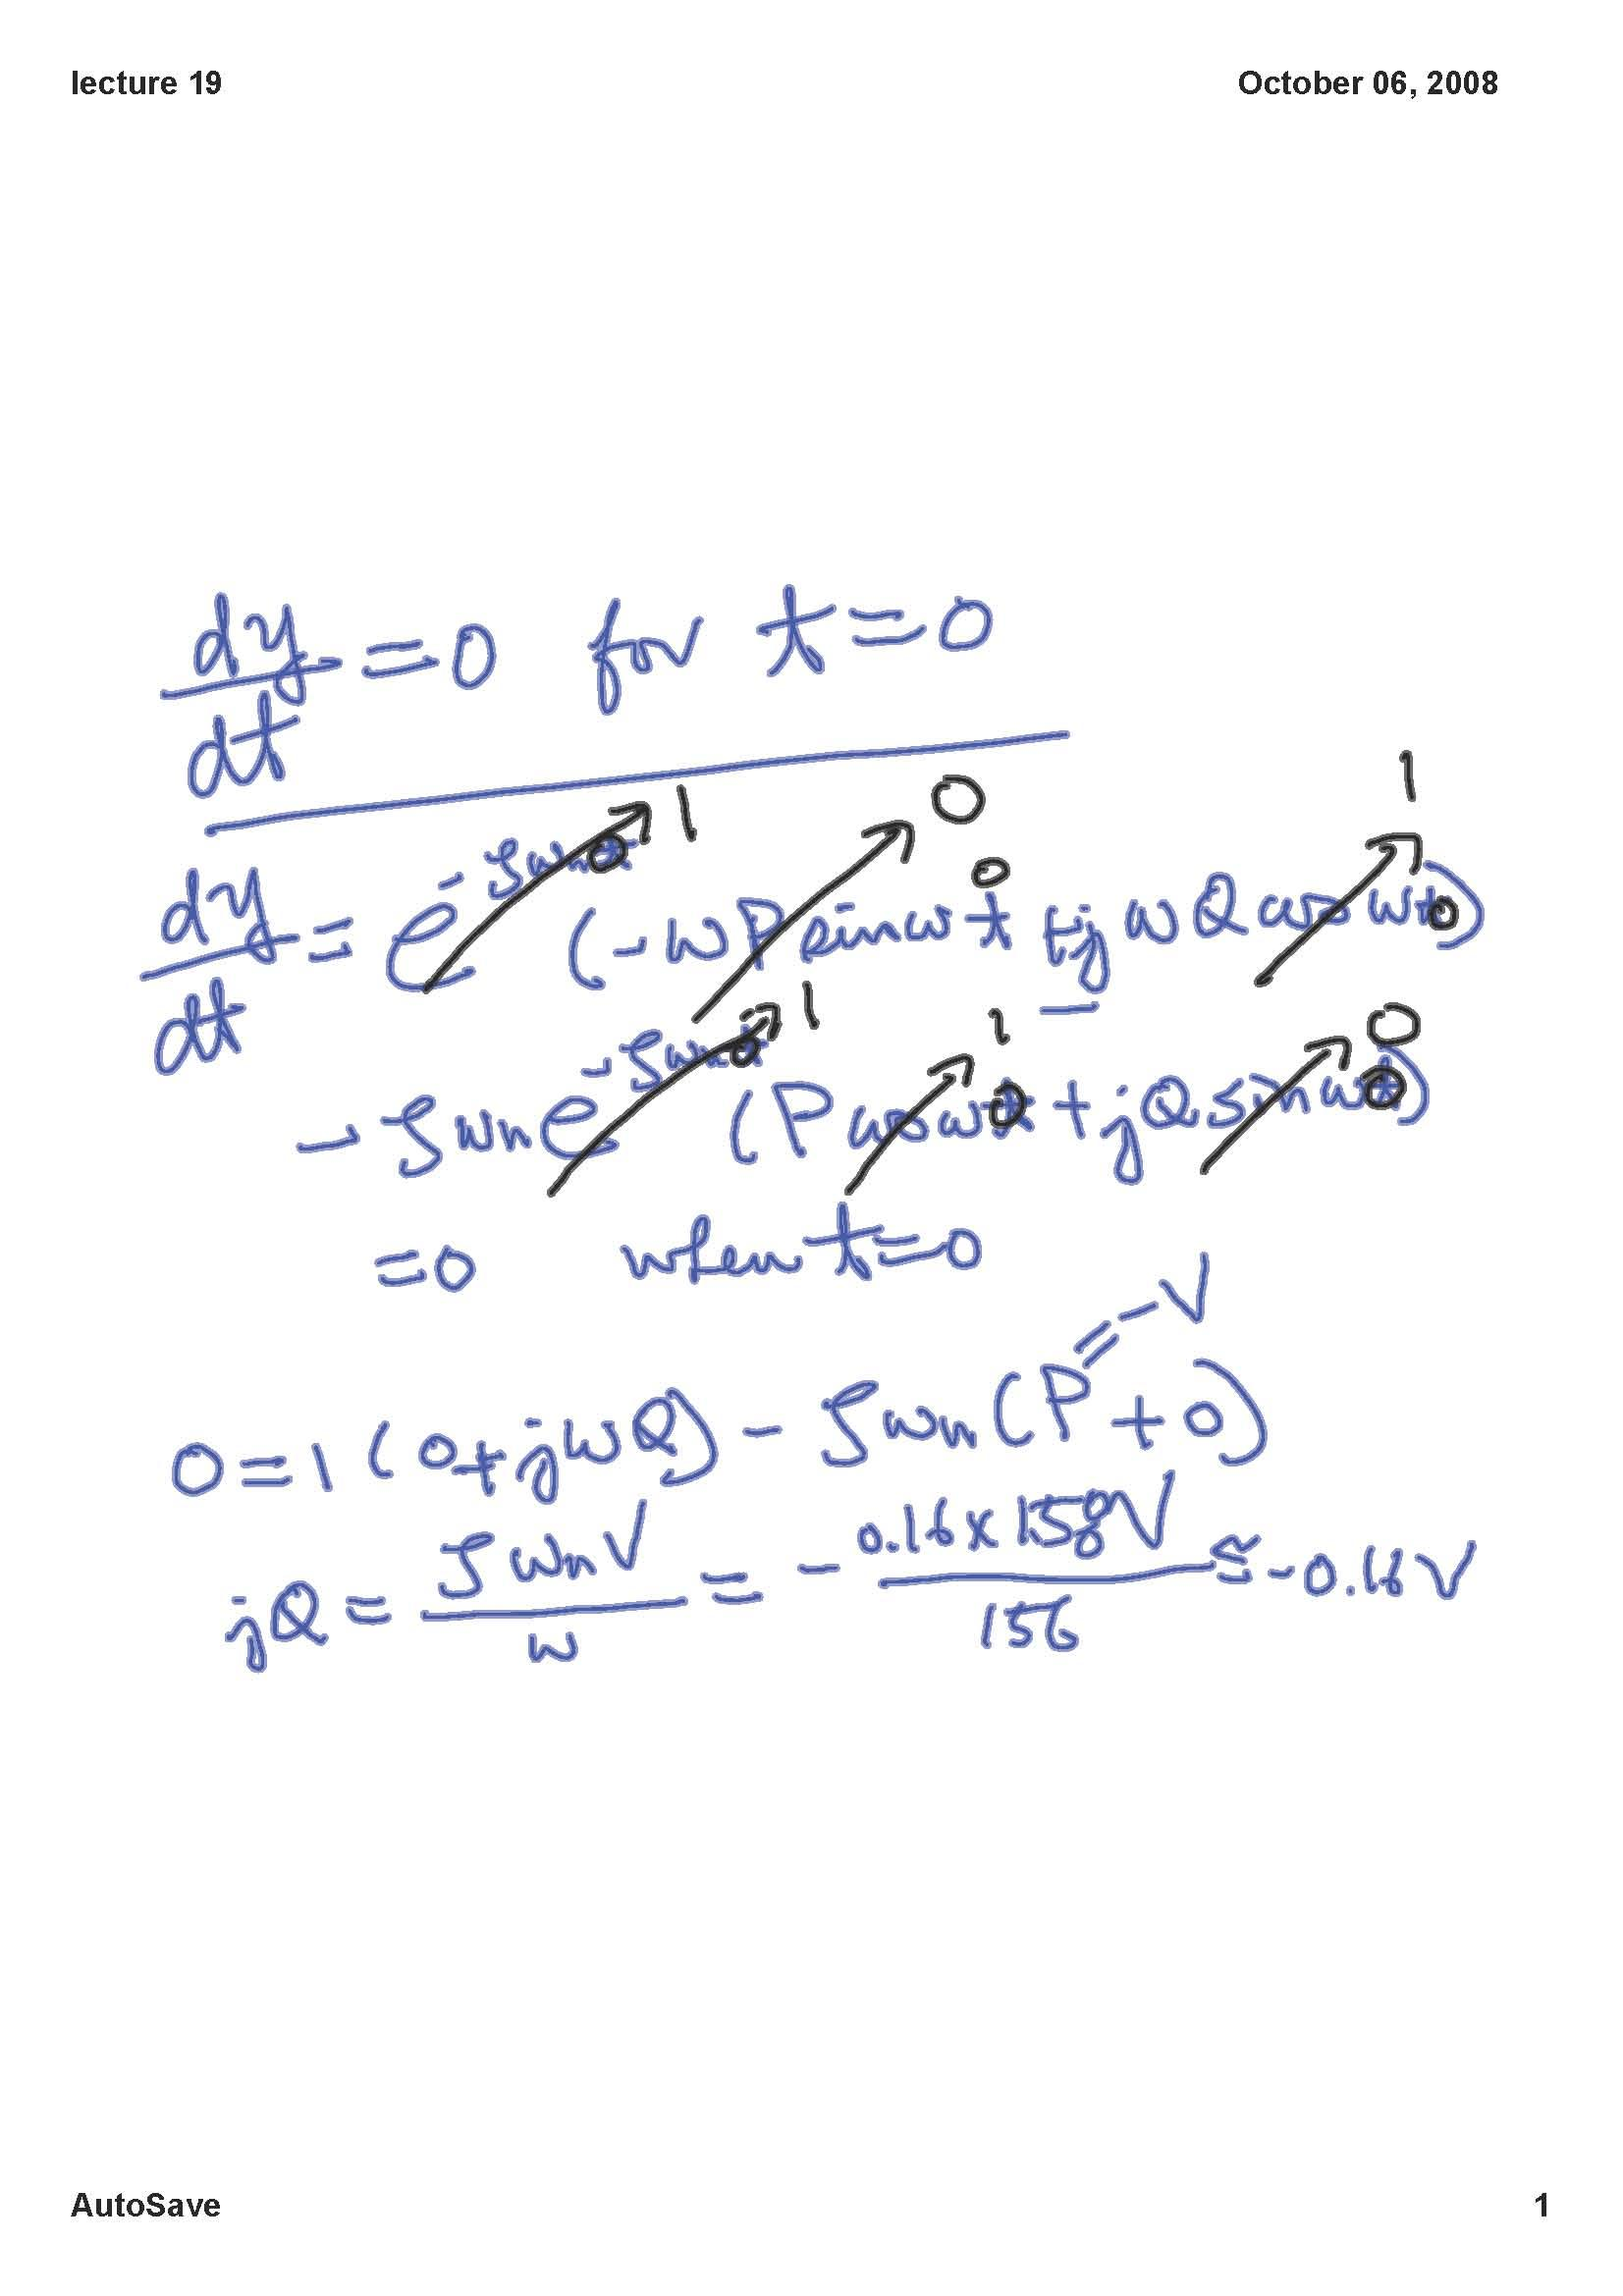 lecture 19
October 06, 2008
dy/dt = 0 for t = 0
dy/dt = e^(-ζωn t) (-ωP sin ωt + jωQ cos ωt)
1 0 0 0 1 0
- ζωn e^(-ζωn t) (P cos ωt + jQ sin ωt)
1 0 1 0 0 0
= 0 when t = 0
0 = 1 (0 + jωQ) - ζωn (P + 0)
= -V
jQ = ζωn V / ω = - 0.16 x 158V / 156 ≅ -0.16 V
AutoSave
1